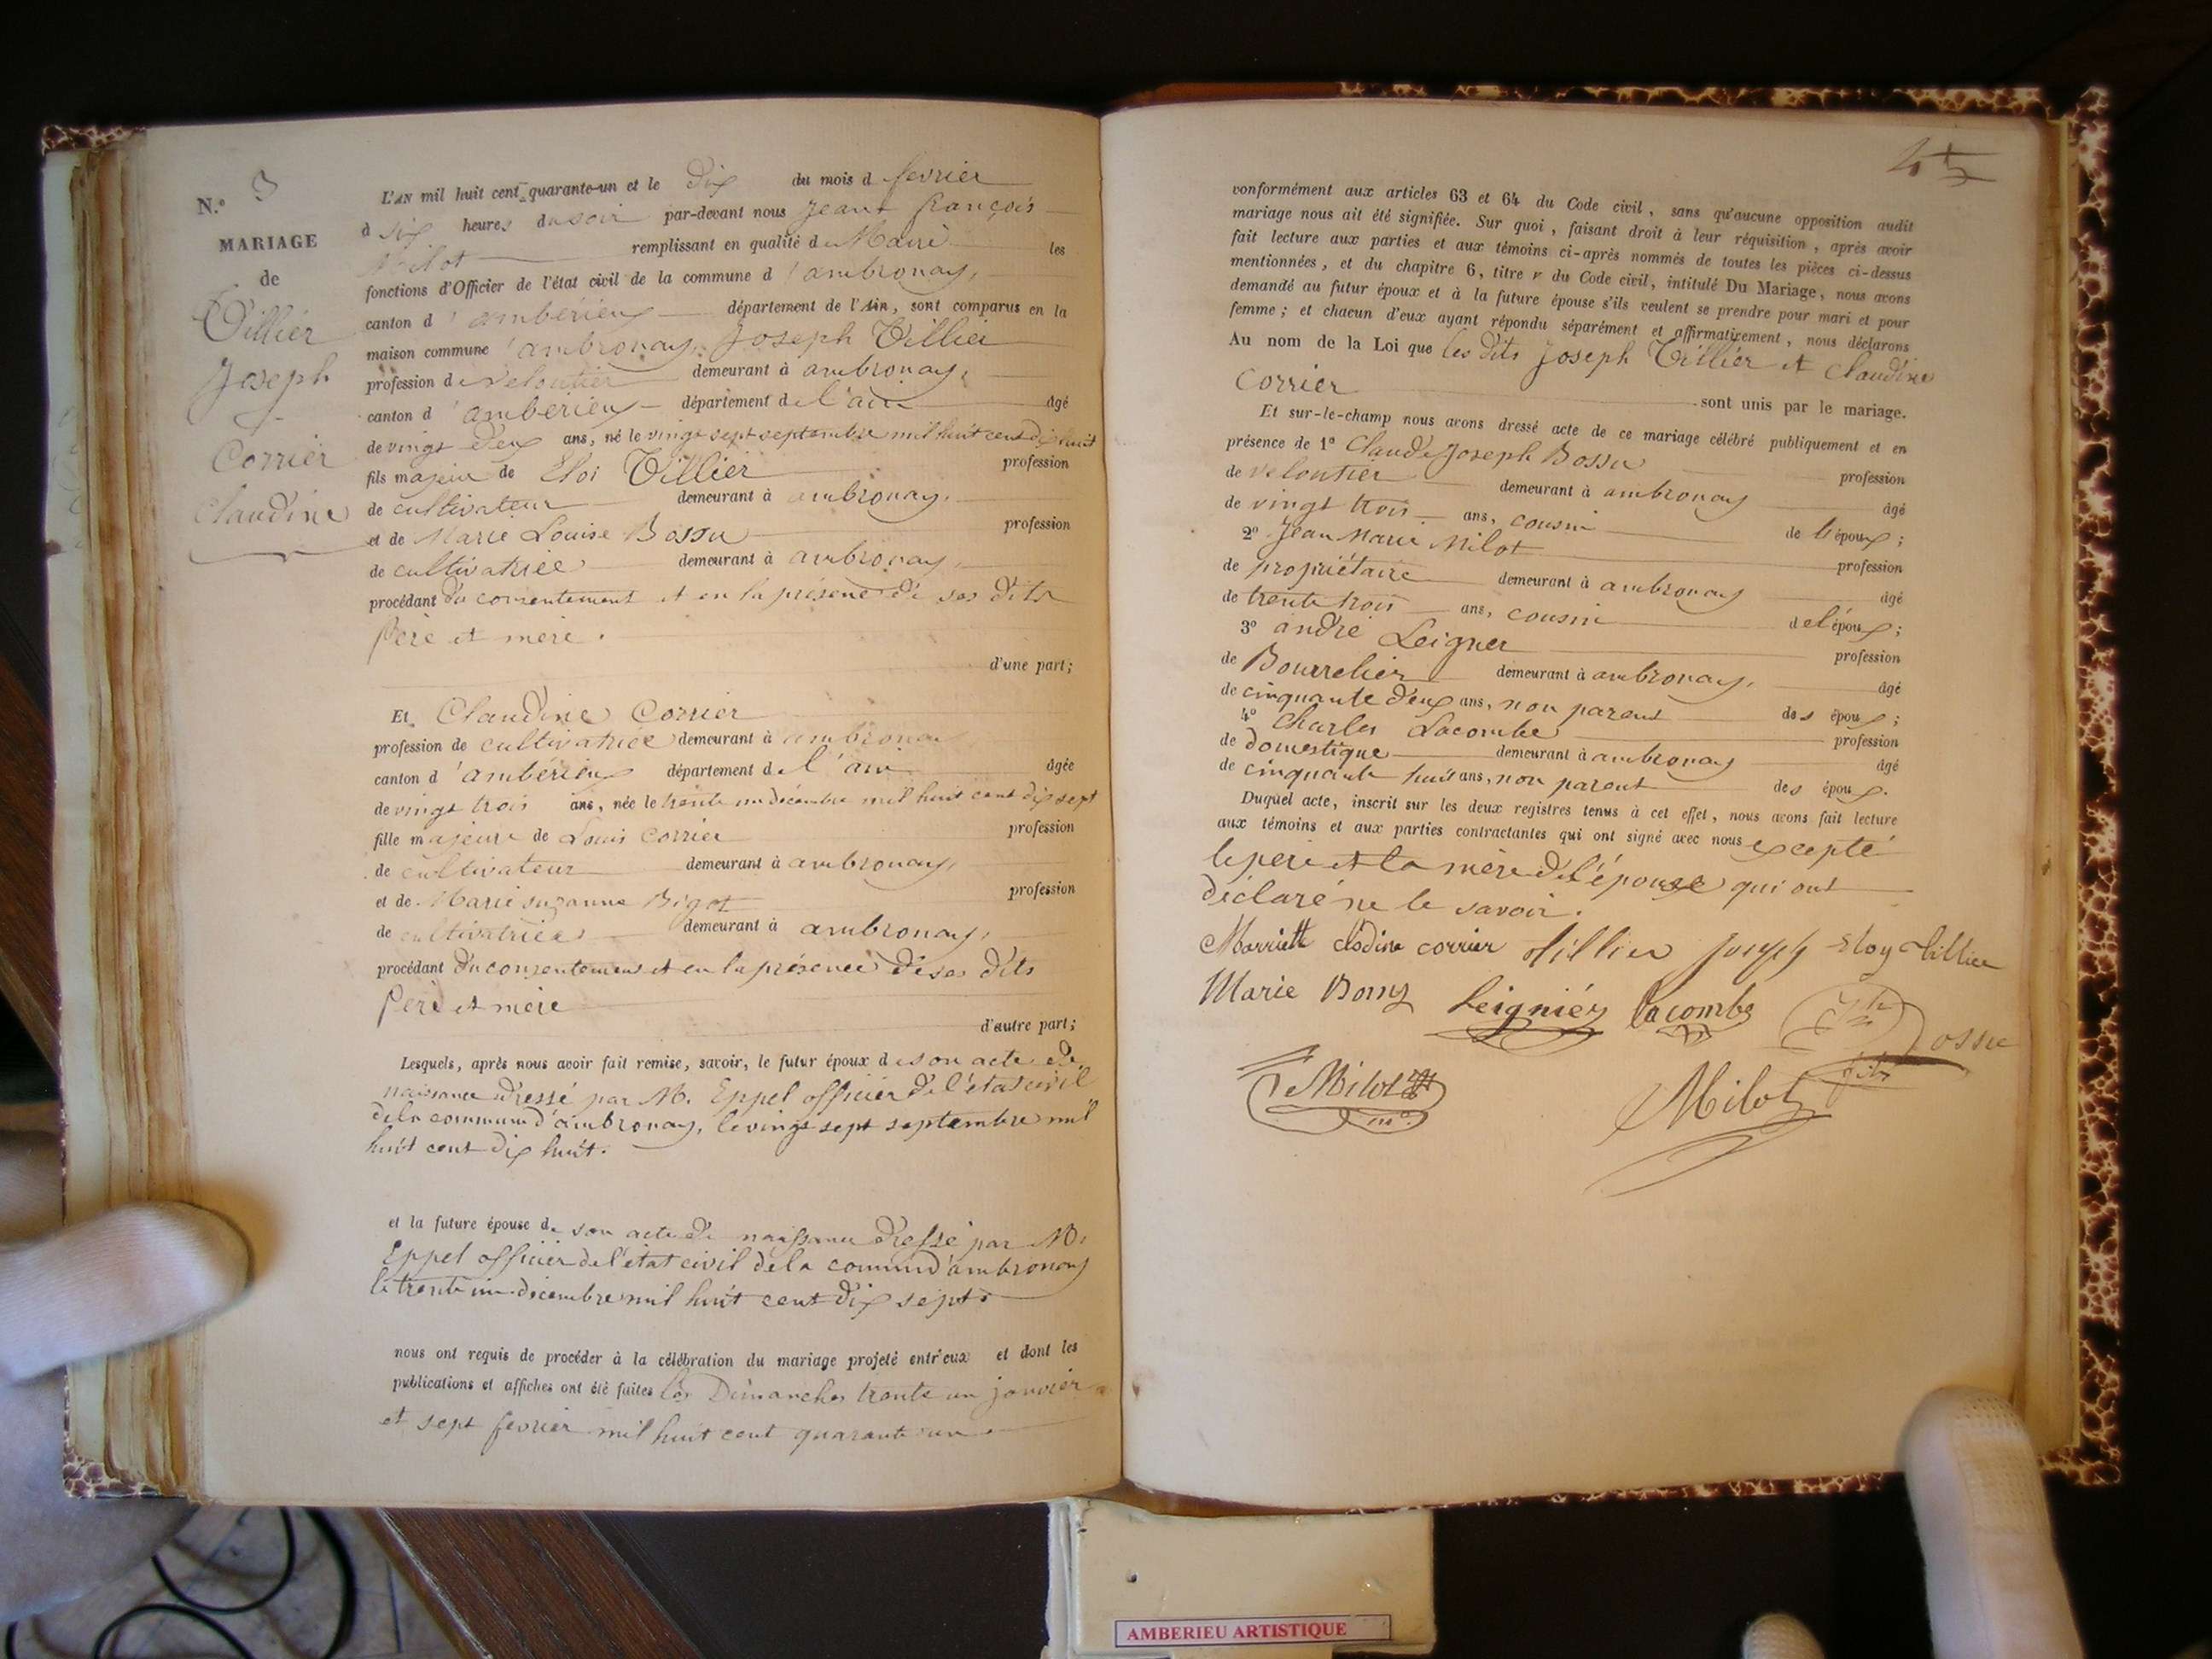 N.o 3
MARIAGE
de
Tillier
Joseph
Corrier
Claudine
L'AN mil huit cent quarante-un et le Dix du mois d fevrier
à six heures du soir par-devant nous Jean françois
Milot remplissant en qualité de Maire les
fonctions d'Officier de l'état civil de la commune d'ambronay,
canton d'ambérieux département de l'Ain, sont comparus en la
maison commune d'ambronay, Joseph Tillier
profession de veloutier demeurant à ambronay,
canton d'ambérieux département de l'ain âgé
de vingt deux ans, né le vingt sept septembre mil huit cent dix huit
fils majeur de Eloi Tillier profession
de cultivateur demeurant à ambronay,
et de Marie Louise Bossu profession
de cultivatrice demeurant à ambronay,
procédant du consentement et en la présence de ses dits
Père et mère.
d'une part;
Et Claudine Corrier
profession de cultivatrice demeurant à ambronay
canton d'ambérieux département de l'ain âgée
de vingt trois ans, née le trente un décembre mil huit cent dix sept
fille majeure de Louis Corrier profession
de cultivateur demeurant à ambronay,
et de Marie suzanne Bigot profession
de cultivatrice demeurant à ambronay,
procédant du consentement et en la présence de ses dits
Père et mère
d'autre part;
Lesquels, après nous avoir fait remise, savoir, le futur époux de son acte de
naissance dressé par M. Eppel officier de l'état civil
de la commune d'ambronay, le vingt sept septembre mil
huit cent dix huit.
et la future épouse de son acte de naissance dressé par M.
Eppel officier de l'état civil de la commune d'ambronay
le trente un décembre mil huit cent dix sept.
nous ont requis de procéder à la célébration du mariage projeté entr'eux et dont les
publications et affiches ont été faites les Dimanches trente un janvier
et sept fevrier mil huit cent quarante un
45
conformément aux articles 63 et 64 du Code civil, sans qu'aucune opposition audit
mariage nous ait été signifiée. Sur quoi, faisant droit à leur réquisition, après avoir
fait lecture aux parties et aux témoins ci-après nommés de toutes les pièces ci-dessus
mentionnées, et du chapitre 6, titre v du Code civil, intitulé Du Mariage, nous avons
demandé au futur époux et à la future épouse s'ils veulent se prendre pour mari et pour
femme; et chacun d'eux ayant répondu séparément et affirmativement, nous déclarons
Au nom de la Loi que les dits Joseph Tillier et Claudine
Corrier sont unis par le mariage.
Et sur-le-champ nous avons dressé acte de ce mariage célébré publiquement et en
présence de 1o Claude Joseph Bossu profession
de veloutier demeurant à ambronay âgé
de vingt trois ans, cousin de l'époux;
2o Jean Marie Milot profession
de propriétaire demeurant à ambronay âgé
de trente trois ans, cousin de l'époux;
3o andré Leigner profession
de Bourrelier demeurant à ambronay, âgé
de cinquante deux ans, non parent des époux;
4o Charles Lacombe profession
de domestique demeurant à ambronay âgé
de cinquante huit ans, non parent des époux.
Duquel acte, inscrit sur les deux registres tenus à cet effet, nous avons fait lecture
aux témoins et aux parties contractantes qui ont signé avec nous excepté
le père et la mère de l'épouse qui ont
déclaré ne le savoir.
Marriette clodine corrier tillier joseph Eloy tillier
Marie Leigniér lacombe Bossu
fils
Milot Milot
AMBERIEU ARTISTIQUE